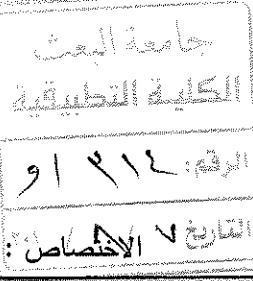 جامعة البعث
الكلية التطبيقية
الرقم: ٣١٤ / و
التاريخ ٧
الاختصاص :